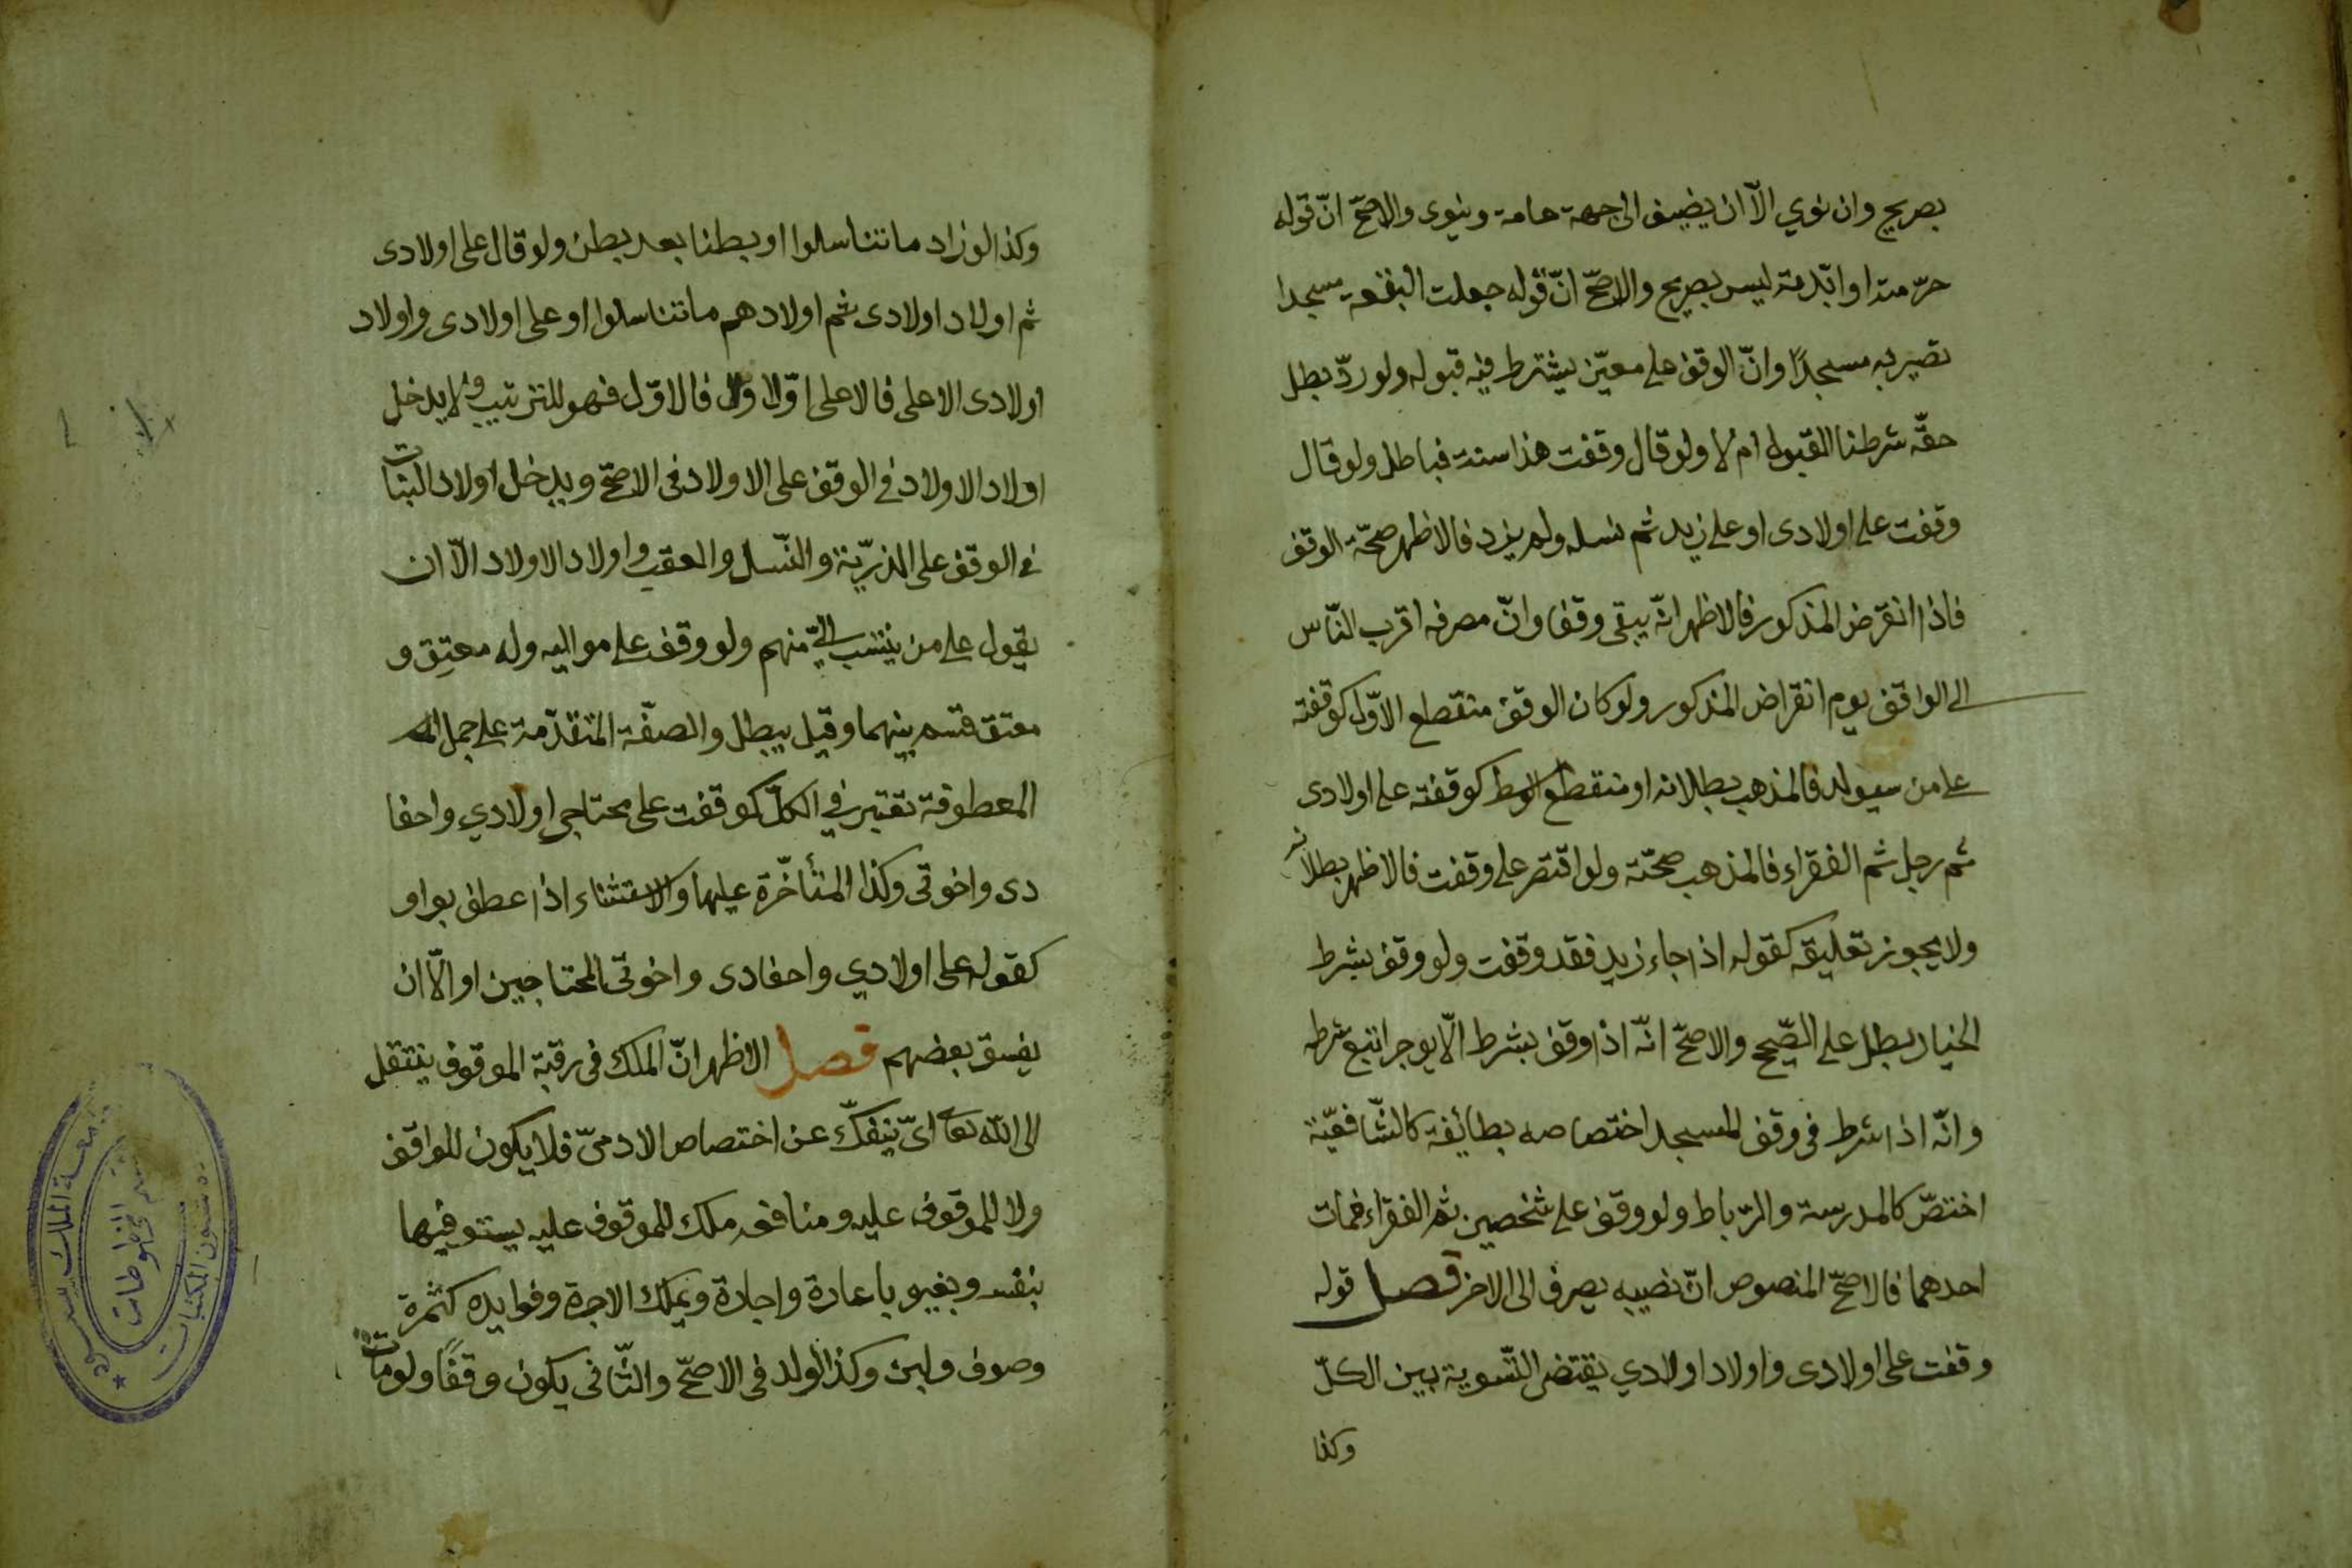 بصريح وان نوي الّا ان يضيف الى جهة عامة وينوى والاصحّ انّ قوله
حرّمته او ابّدته ليس بصريح والاصحّ انّ قوله جعلت البقعة مسجدا
تصير به مسجدًا وانّ الوقف على معيّن يشترط فيه قبوله ولو ردّ بطل
حقّه شرطنا القبول ام لا ولو قال وقفت هذا سنة فباطل ولو قال
وقفت على اولادى او على زيد ثم نسله ولم يزد فالاظهر صحّة الوقف
فاذا انقرض المذكور فالاظهر انّه يبقى وقفا وانّ مصرفه اقرب النّاس
الى الواقف يوم انقراض المذكور ولو كان الوقف منقطع الاوّل كوقفته
على من سيولد فالمذهب بطلانه او منقطع الوسط كوقفته على اولادى
ثم رجل ثم الفقراء فالمذهب صحّته ولو اقتصر على وقفت فالاظهر بطلانه
ولا يجوز تعليقه كقوله اذا جاء زيد فقد وقفت ولو وقف بشرط
الخيار بطل على الصّحيح والاصحّ انّه اذا وقف بشرط الّا يوجر اتبع شرطه
وانّه اذا شرط فى وقف المسجد اختصاصه بطائفة كالشّافعيّة
اختصّ كالمدرسة والرباط ولو وقف على شخصين ثم الفقراء فمات
احدهما فالاصحّ المنصوص انّ نصيبه يصرف الى الاخر فصل قوله
وقفت على اولادى واولاد اولادي يقتضى التّسوية بين الكلّ
وكذا
وكذا لو زاد ما تناسلوا او بطنا بعد بطن ولو قال على اولادى
ثم اولاد اولادى ثم اولادهم ما تناسلوا او على اولادى واولاد
اولادى الاعلى فالاعلى او الاول فالاوّل فهو للترتيب ولا يدخل
اولاد الاولاد في الوقف على الاولاد فى الاصحّ ويدخل اولاد البنات
في الوقف على الذرّيّة والنّسل والعقب واولاد الاولاد الّا ان
يقول على من ينتسب اليّ منهم ولو وقف على مواليه وله معتِق و
معتق قسم بينهما وقيل يبطل والصفّة المتقدّمة على جمل
المعطوفة تعتبر في الكلّ كوقفت على محتاجي اولادي واحفا
دى واخوتى وكذا المتأخّرة عليها والاستثناء اذا عطف بواو
كقوله على اولادي واحفادى واخوتى المحتاجين او الّا ان
يفسق بعضهم فصل الاظهر انّ الملك فى رقبة الموقوف ينتقل
الى اللّه تعالى اىّ ينفكّ عن اختصاص الادميّ فلا يكون للواقف
ولا للموقوف عليه ومنافعه ملك للموقوف عليه يستوفيها
بنفسه وبغيره باعارة واجارة ويملك الاجرة وفوايده كثمرة
وصوف ولبن وكذا الولد فى الاصحّ والثّانى يكون وقفًا ولو ماتت
جامعة الملك سعود
شئون المكتبات
قسم المخطوطات